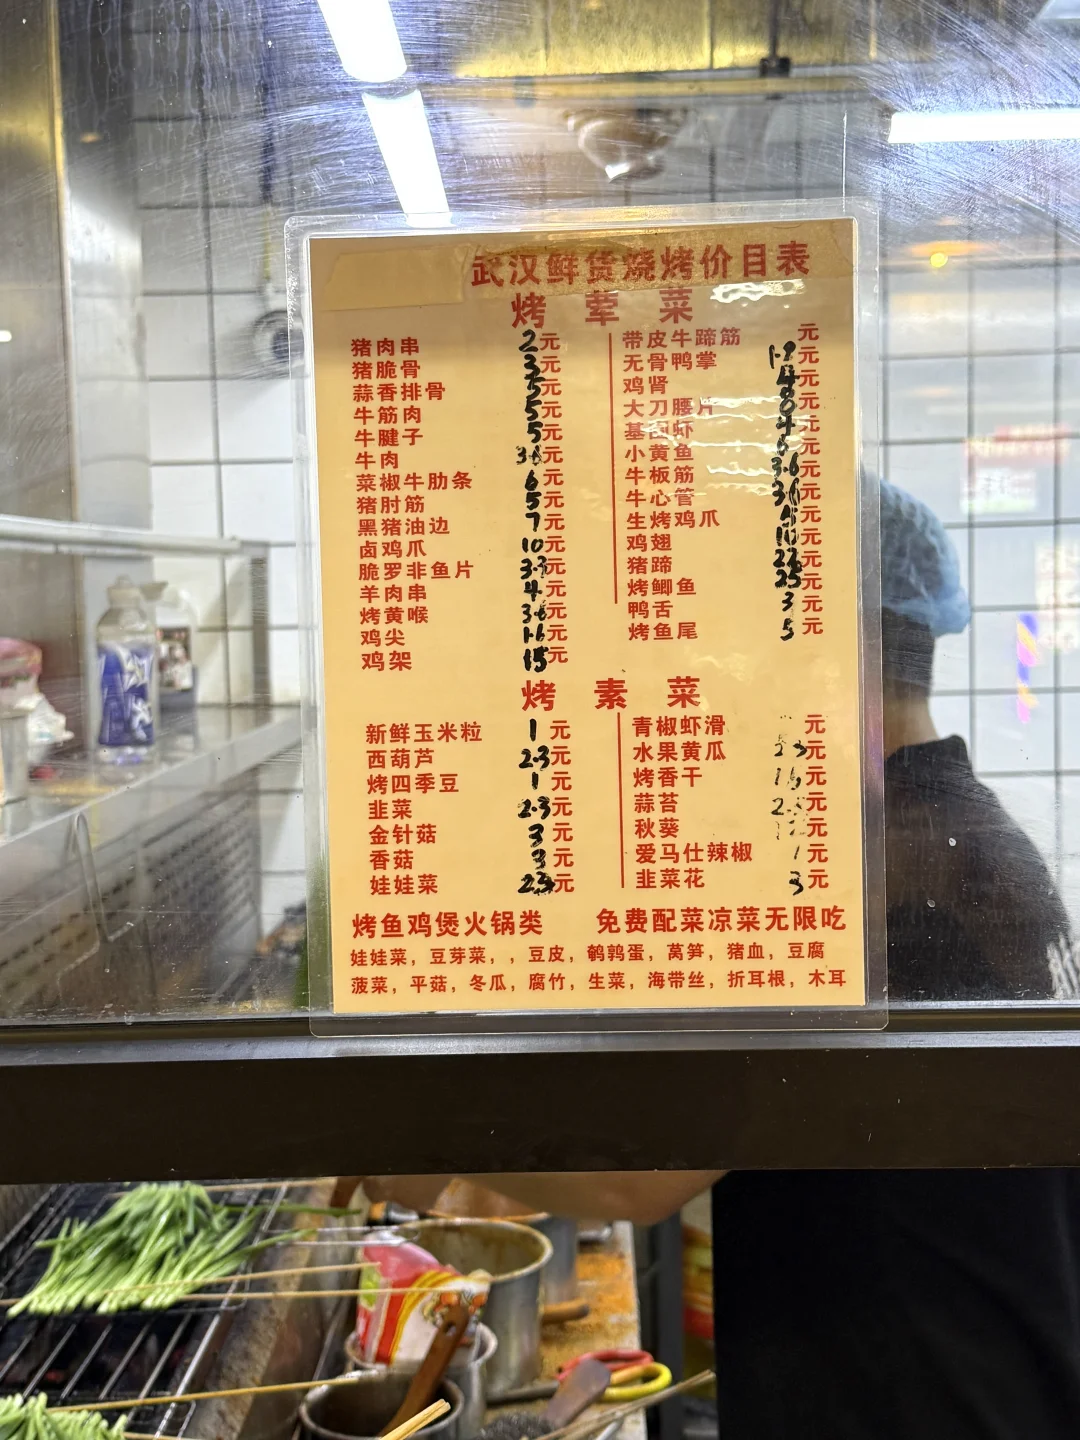 武汉鲜货烧烤价目表
烤荤菜
猪肉串 2元
猪脆骨 3元
蒜香排骨 5元
牛筋肉 5元
牛腱子 5元
牛肉 3.6元
菜椒牛肋条 6元
猪肘筋 5元
黑猪油边 7元
卤鸡爪 10元
脆罗非鱼片 3.3元
羊肉串 4元
烤黄喉 3.6元
鸡尖 1.6元
鸡架 15元
带皮牛蹄筋 元
无骨鸭掌 元
鸡肾 元
大刀腰片 元
基围虾 元
小黄鱼 元
牛板筋 3.6元
牛心管 元
生烤鸡爪 元
鸡翅 10元
猪蹄 元
烤鲫鱼 25元
鸭舌 3元
烤鱼尾 5元
烤素菜
新鲜玉米粒 1元
西葫芦 2.3元
烤四季豆 1元
韭菜 2.3元
金针菇 3元
香菇 3元
娃娃菜 元
青椒虾滑 元
水果黄瓜 元
烤香干 元
蒜苔 元
秋葵 元
爱马仕辣椒 元
韭菜花 3元
烤鱼鸡煲火锅类 免费配菜凉菜无限吃
娃娃菜，豆芽菜，，豆皮，鹌鹑蛋，莴笋，猪血，豆腐
菠菜，平菇，冬瓜，腐竹，生菜，海带丝，折耳根，木耳